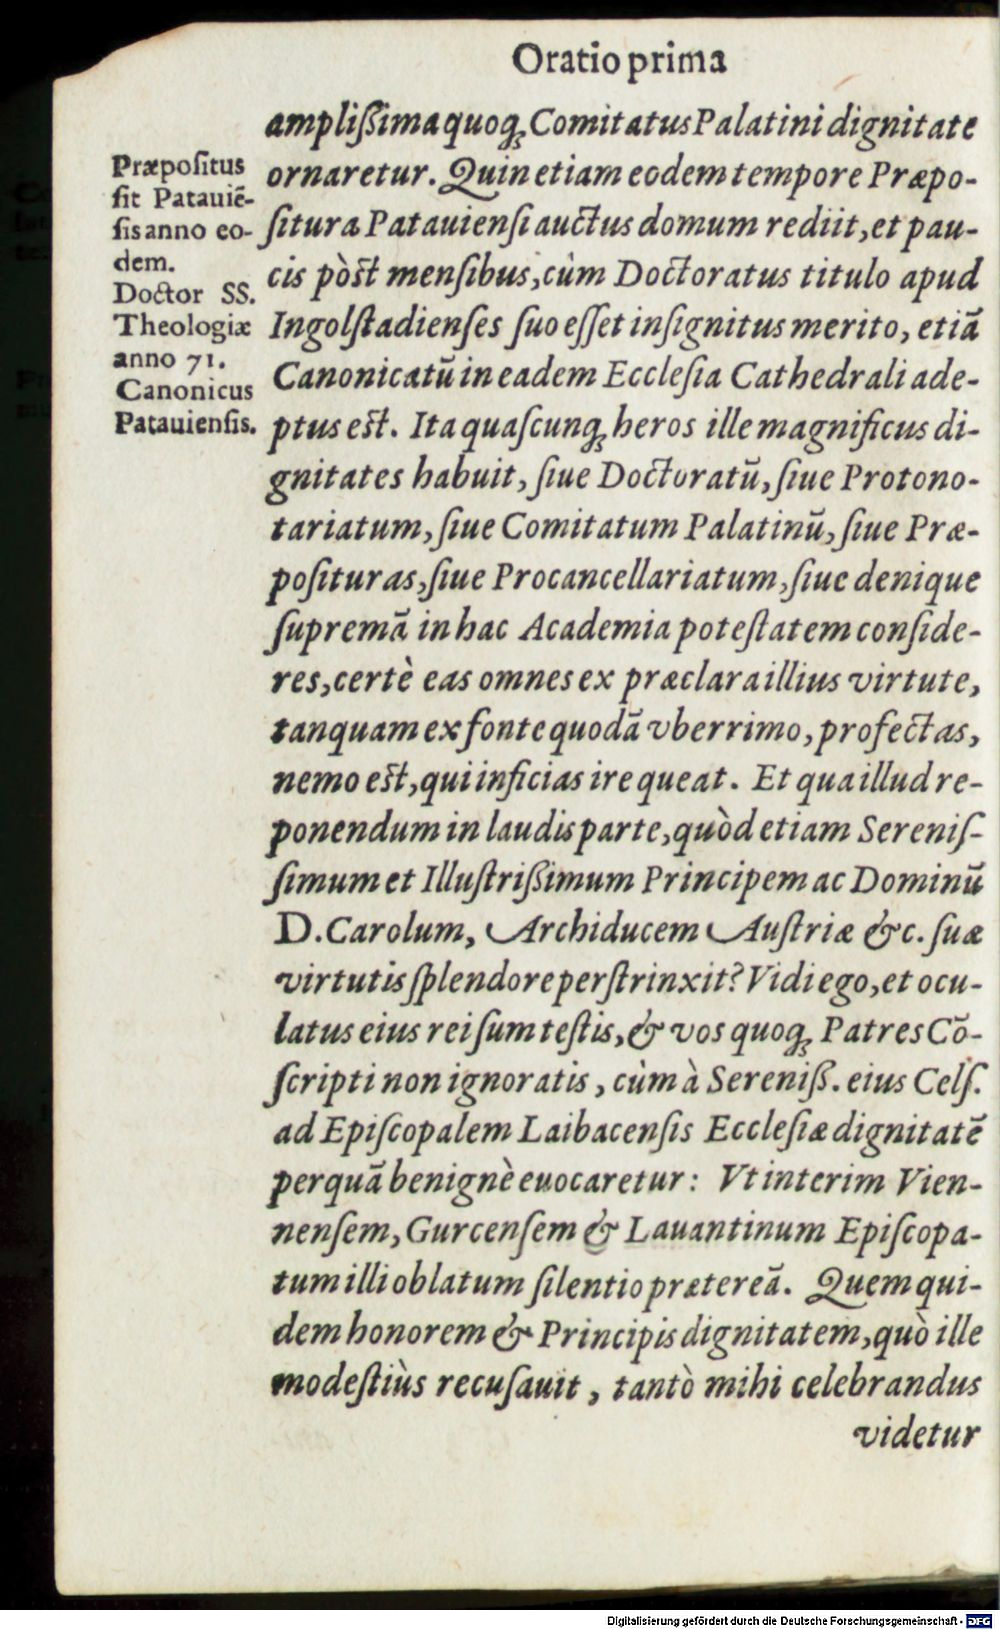 Oratio prima
ampliſſima quoq́; Comitatus Palatini dignitate
ornaretur. Quin etiam eodem tempore Præpo-
ſitura Patauienſi auctus domum rediit, et pau-
cis pòst menſibus, cùm Doctoratus titulo apud
Ingolſtadienſes ſuo eſſet inſignitus merito, etiā
Canonicatū in eadem Eccleſia Cathedrali ade-
ptus est. Ita quaſcunq́; heros ille magnificus di-
gnitates habuit, ſiue Doctoratū, ſiue Protono-
tariatum, ſiue Comitatum Palatinū, ſiue Præ-
poſituras, ſiue Procancellariatum, ſiue denique
ſupremā in hac Academia poteſtatem conſide-
res, certè eas omnes ex præclara illius virtute,
tanquam ex fonte quodā vberrimo, profectas,
nemo est, qui inficias ire queat. Et qua illud re-
ponendum in laudis parte, quòd etiam Sereniſ-
ſimum et Illuſtriſſimum Principem ac Dominū
D. Carolum, Archiducem Auſtriæ &c. ſuæ
virtutis ſplendore perſtrinxit? Vidi ego, et ocu-
latus eius rei ſum teſtis, & vos quoq́; Patres Cō-
ſcripti non ignoratis, cùm à Sereniſſ. eius Celſ.
ad Epiſcopalem Laibacenſis Eccleſiæ dignitatē
perquā benignè euocaretur: Vt interim Vien-
nenſem, Gurcenſem & Lauantinum Epiſcopa-
tum illi oblatum ſilentio prætereā. Quem qui-
dem honorem & Principis dignitatem, quò ille
modeſtiùs recuſauit, tantò mihi celebrandus
videtur
Præpoſitus
fit Patauiē-
ſis anno eo-
dem.
Doctor SS.
Theologiæ
anno 71.
Canonicus
Patauienſis.
Digitalisierung gefördert durch die Deutsche Forschungsgemeinschaft - DFG